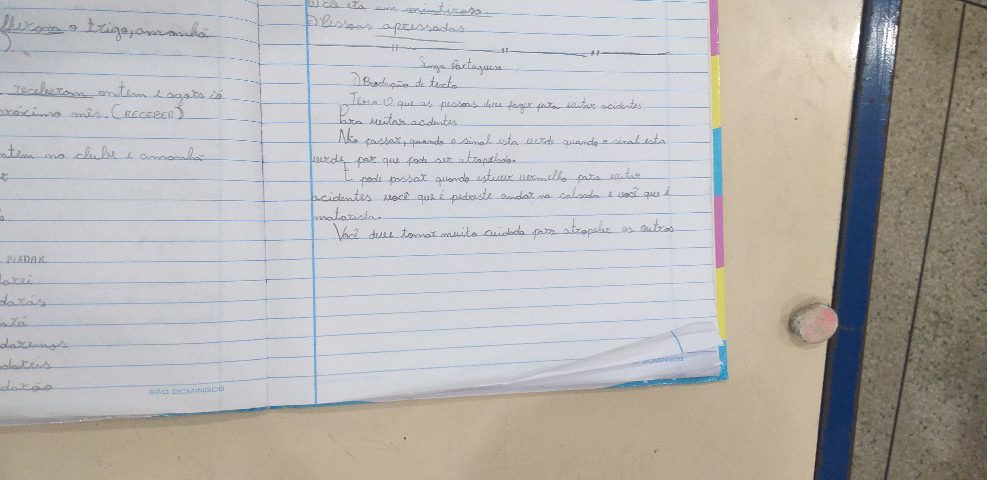 fleram o trigo, amanhã
)
receberam ontem e agora só
próximo mês. (RECEBER)
ntem no clube e amanhã
NADAR
darei
darás
dará
daremos
dareis
darão
SÃO DOMINGOS
b) Ele era um mentiroso.
c) Pessoas apressadas
Linga Portuguesa
1) Produção de texto
Tema. O que as pessoas deve fazer para evitar acidentes.
Para evitar acidentes
Não passar, quando o sinal esta verde quando o sinal esta
verde por que pode ser atropelado.
E pode passar quando estiver vermelho para evitar
acidentes você que é pedreste andar na calsada e você que é
matorista.
Você deve tomar muito cuidado para atropelar os outros
DOMINGOS